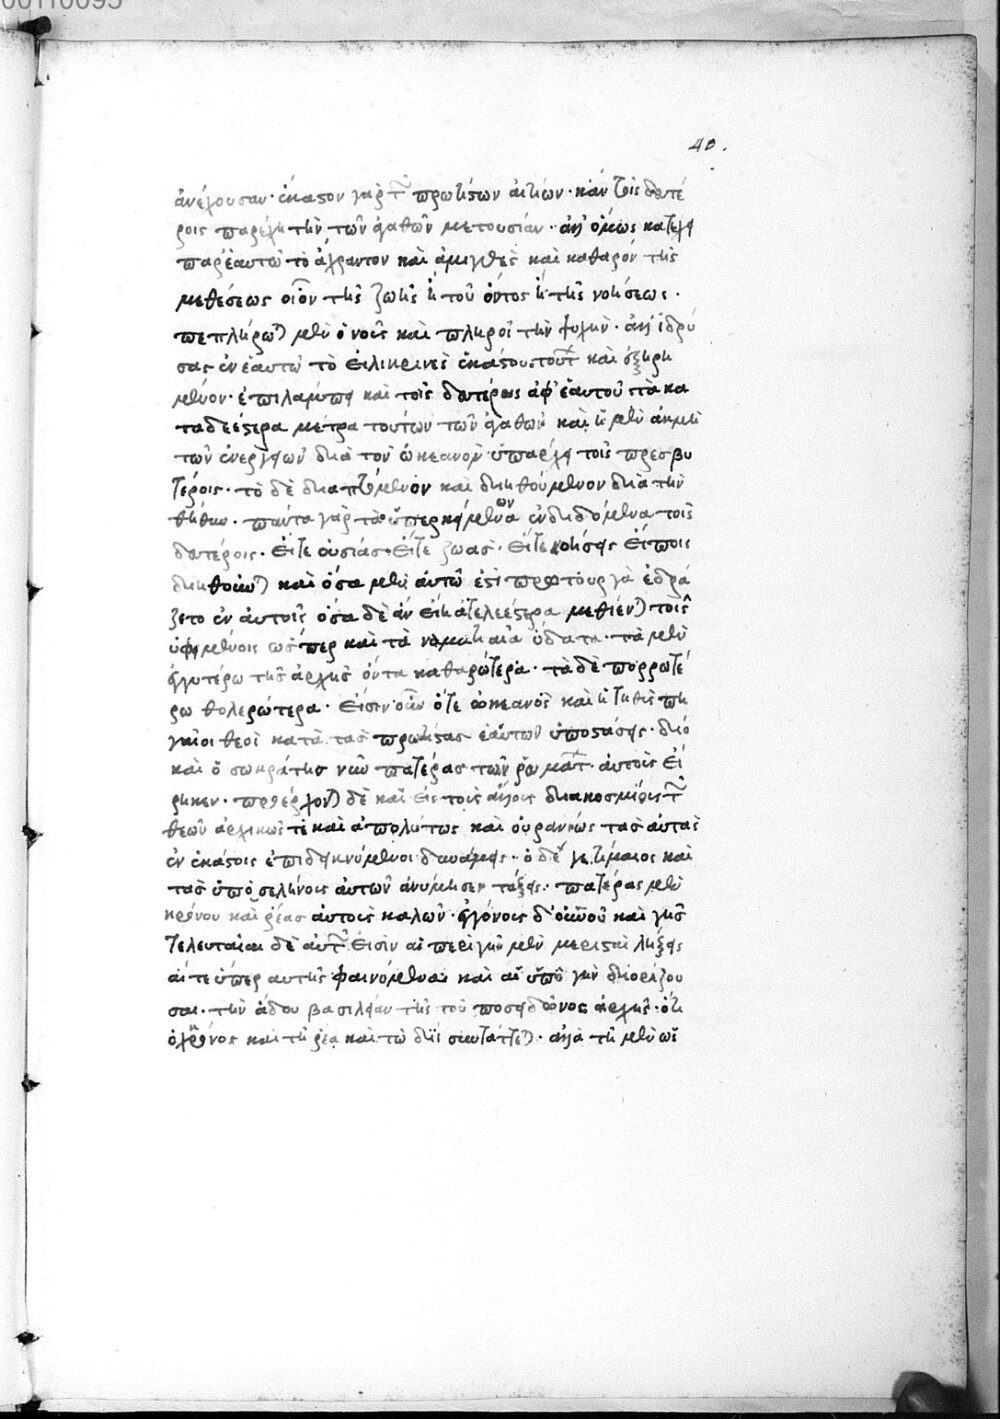 00110095
40.
ἀνέχουσαν· ἕκαστον γὰρ τῶν πρωτίστων αἰτίων· κἂν τοῖς δευτέ
ροις παρέχῃ τὴν τῶν ἀγαθῶν μετουσίαν· ἀλλ' ὅμως κατέχει
παρ' ἑαυτῷ τὸ ἄχραντον καὶ ἀμιγὲς καὶ καθαρὸν τῆς
μεθέξεως οἷον τῆς ζωῆς ἢ τοῦ ὄντος ἢ τῆς νοήσεως·
πεπλήρωται μὲν ὁ νοῦς καὶ πληροῖ τὴν ψυχήν· ἀλλ' ἱδρύ
σας ἐν ἑαυτῷ τὸ εἰλικρινὲς ἑκάστου τούτων καὶ ἐξῃρη
μένον· ἐπιλάμπει καὶ τοῖς δευτέροις ἀφ' ἑαυτοῦ τὰ κα
ταδεέστερα μέτρα τούτων τῶν ἀγαθῶν καὶ ἡ μὲν ἀκμὴ
τῶν ἐνεργειῶν διὰ τὸν ὠκεανὸν ὑπάρχει τοῖς πρεσβυ
τέροις· τὸ δὲ διαττώμενον καὶ διηθούμενον διὰ τὴν
τηθύν· πάντα γὰρ τὰ ὑπερκειμένων ἐνδιδόμενα τοῖς
δευτέροις· εἴτε οὐσίας· εἴτε ζωὰς· εἴτε νοήσεις εἴποις
διηθοῦνται καὶ ὅσα μὲν αὐτῶν ἐστι πρωτουργὰ ἑδρά
ζεται ἐν αὐτοῖς ὅσα δὲ ἂν εἴη ἀτελέστερα μεθίενται τοῖς
ὑφειμένοις ὥσπερ καὶ τὰ ναματιαῖα ὕδατα· τὰ μὲν
ἐγγυτέρω τῆς ἀρχῆς ὄντα καθαρώτερα· τὰ δὲ πορρωτέ
ρω θολερώτερα· εἰσὶν οὖν ὅ τε ὠκεανὸς καὶ ἡ τηθὺς πη
γαῖοι θεοὶ κατὰ τὰς πρωτίστας ἑαυτῶν ὑποστάσεις· διό
καὶ ὁ σωκράτης νῦν πατέρας τῶν ῥευμάτων αὐτοὺς εἴ
ρηκεν· προέρχονται δὲ καὶ εἰς τοὺς ἄλλους διακόσμους τῶν
θεῶν ἀρχικῶς τε καὶ ἀπολύτως καὶ οὐρανίως τὰς αὐτὰς
ἐν ἑκάστοις ἐπιδεικνύμενοι δυνάμεις· ὁ δέ γε τίμαιος καὶ
τὰς ὑπὸ σελήνοις αὐτῶν ἀνύμνησεν τάξεις· πατέρας μὲν
κρόνου καὶ ῥέας αὐτοὺς καλῶν· ἐγγόνους δ' οὐρανοῦ καὶ γῆς
τελευταῖαι δὲ αὐτῶν εἰσὶν αἱ περὶ γῆν μὲν μερισταὶ λήξεις
αἵ τε ὑπὲρ αὐτῆς φαινόμεναι καὶ αἱ ὑπὸ γῆν διορίζου
σαι· τὴν ἅδου βασιλείαν τῆς τοῦ ποσειδῶνος ἀρχῆς· ὅτι
ὁ κρόνος καὶ τῇ ῥέᾳ καὶ τῷ διῒ συντάττεται· ἀλλὰ τῇ μὲν ὡς